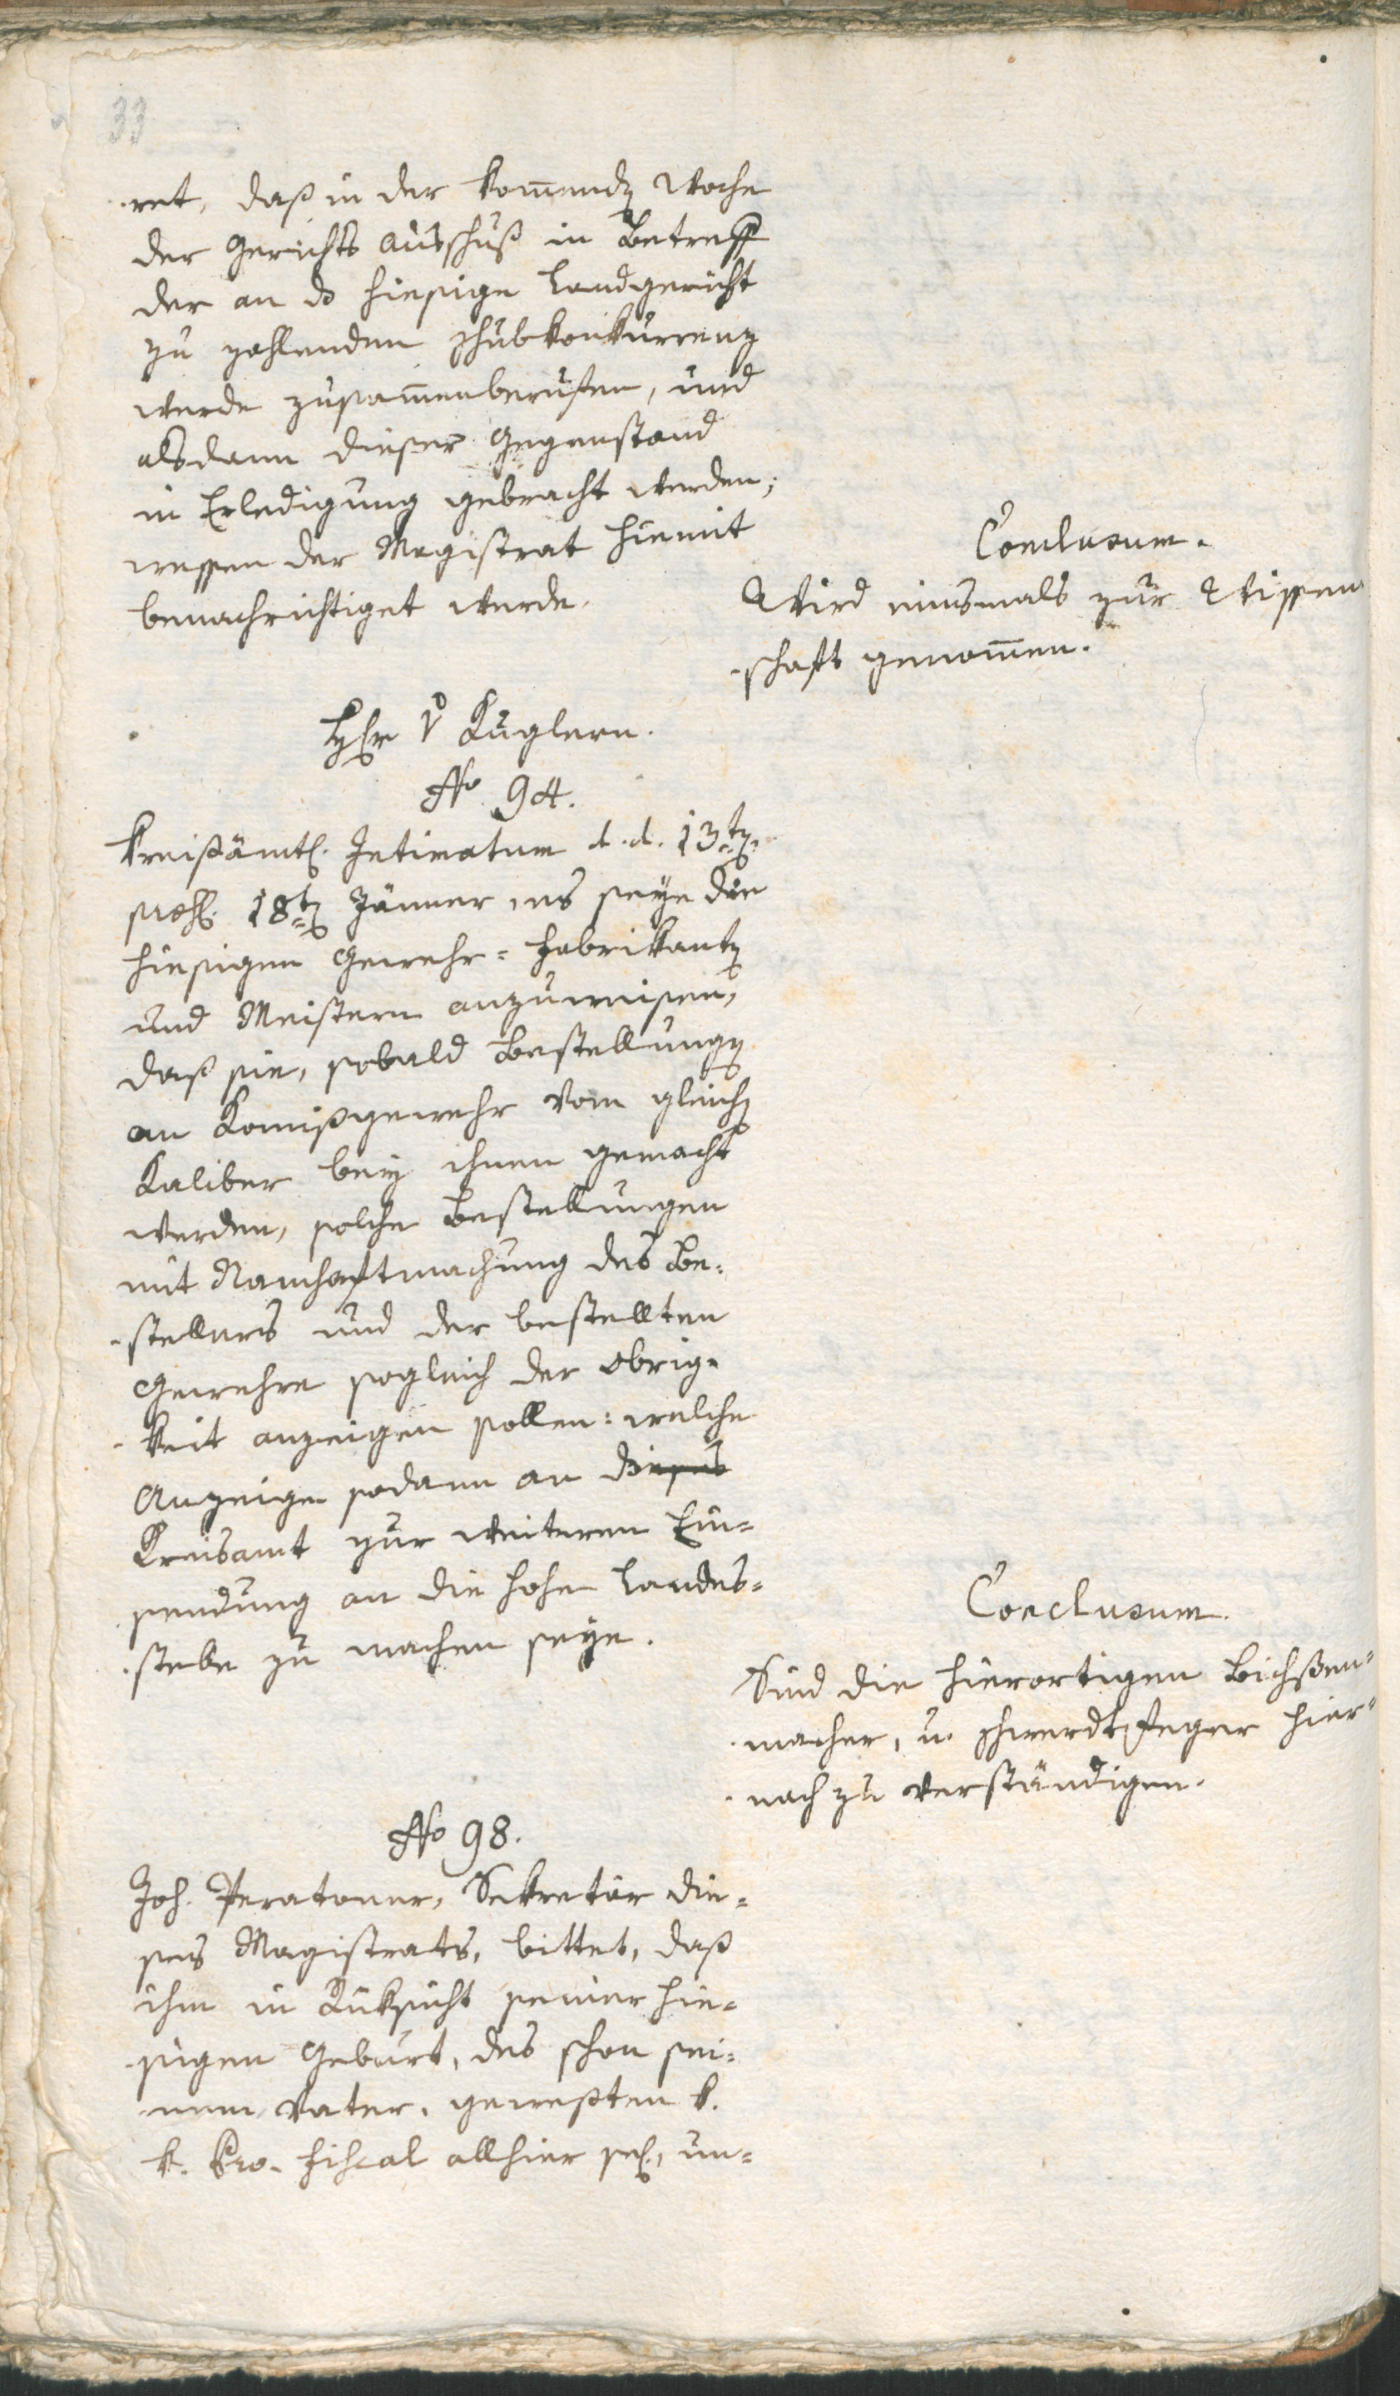 33
ret, daß in der kom̅enden Woche
der Gerichts Ausschuß in Betreff
der an das hiesige Landgericht
zu zahlenden Schubkonkurrenz
werde zusam̅enberufen, und
alsdann dieser Gegenstand
in Erledigung gebracht werden;
wessen der Magistrat hiemit
benachrichtiget werde.
Conclusum.
Wird einsmals zur Wissen
-schaft genom̅en.
Herr v Kuglern.
No 94.
Kreißämtl. Intimatum d. d. 13ten
præs. 18ten Jänner es seye die
hiesigen Gewehr-Fabrikanten
und Meistern anzuweisen,
daß sie, sobald Bestellungen
an Komißgewehr vom gleichen
Kaliber bey ihnen gemacht
werden, solche Bestellungen
mit Namhaftmachung des Be-
-stellers und der bestellten
Gewehre sogleich der Obrig-
-keit anzeigen sollen: welche
Anzeige sodann an dieses
Kreisamt zur weiteren Ein-
sendung an die hohe Landes-
-stelle zu machen seye.
Conclusum.
Sind die hierortigen Bichßen-
-macher, u. Schwerdtfeger hier-
-nach zu verständigen.
No 98.
Joh. Peratoner, Sekretär die-
ses Magistrats, bittet, daß
ihm in Rüksicht seiner hie-
-sigen Geburt, des schon sei-
-nem Vater, geweßten k.
k. Pro-Fiscal allhier sel., un-